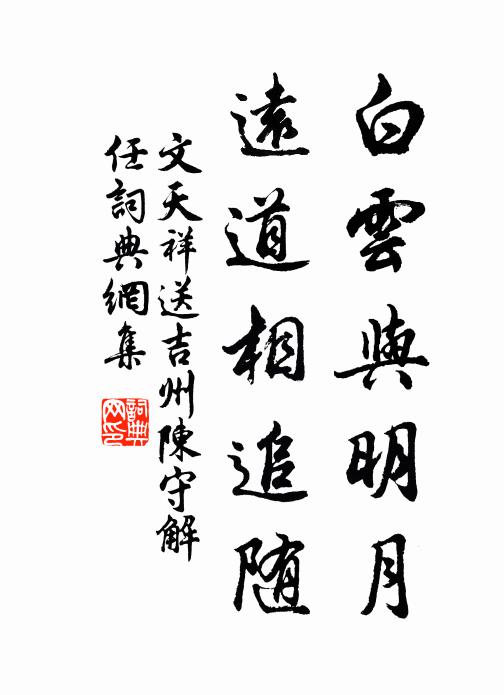 白雲與明月
遠道相追随
文天祥送吉州陳守解
任詞典網集
詞典网印